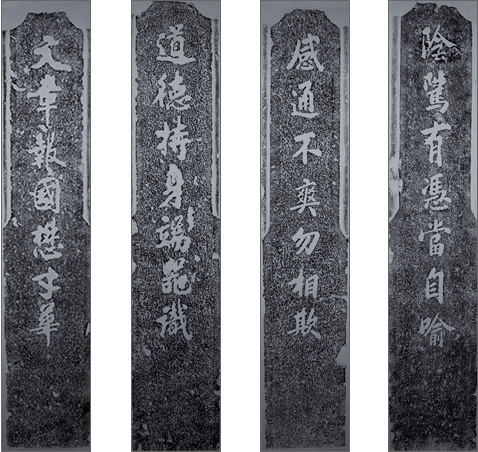 陰騭有憑當自喻
感通不爽勿相欺
道德持身端器識
文章報國懋才華